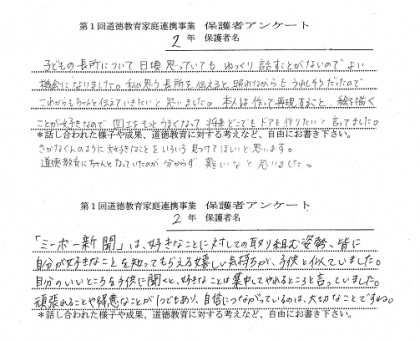 第1回道徳教育家庭連携事業 保護者アンケート
2年 保護者名
子どもの長所について日頃思っていてもゆっくり話すことがないのでよい
機会になりました。私の思う長所を伝えると、照れながらもうれしそうだったので
これからもちゃんと伝えていきたいと思いました。本人は作って再現すること、絵を描く
ことが好きなので図工をもっとうまくなって将来どこでもドアを作りたいと言ってました。
*話し合われた様子や成果、道徳教育に対する考えなど、自由にお書き下さい。
さかなくんのように大好きなことをいろいろ見つけてほしいと思います。
道徳教育にちゃんとなっていたのか分からず難しいなと思いました。
第1回道徳教育家庭連携事業 保護者アンケート
2年 保護者名
「ミーボー新聞」は、好きなことに対しての取り組む姿勢、皆に
自分が好きなことを知ってもらえる嬉しい気持ちが、子供と似ていました。
自分のいいところを子供に聞くと、好きなことは集中してやれるところと言っていました。
*話し合われた様子や成果、道徳教育に対する考えなど、自由にお書き下さい。
頑張れることや得意なことが1つでもあり、自信につながっているのは、大切なことですね。